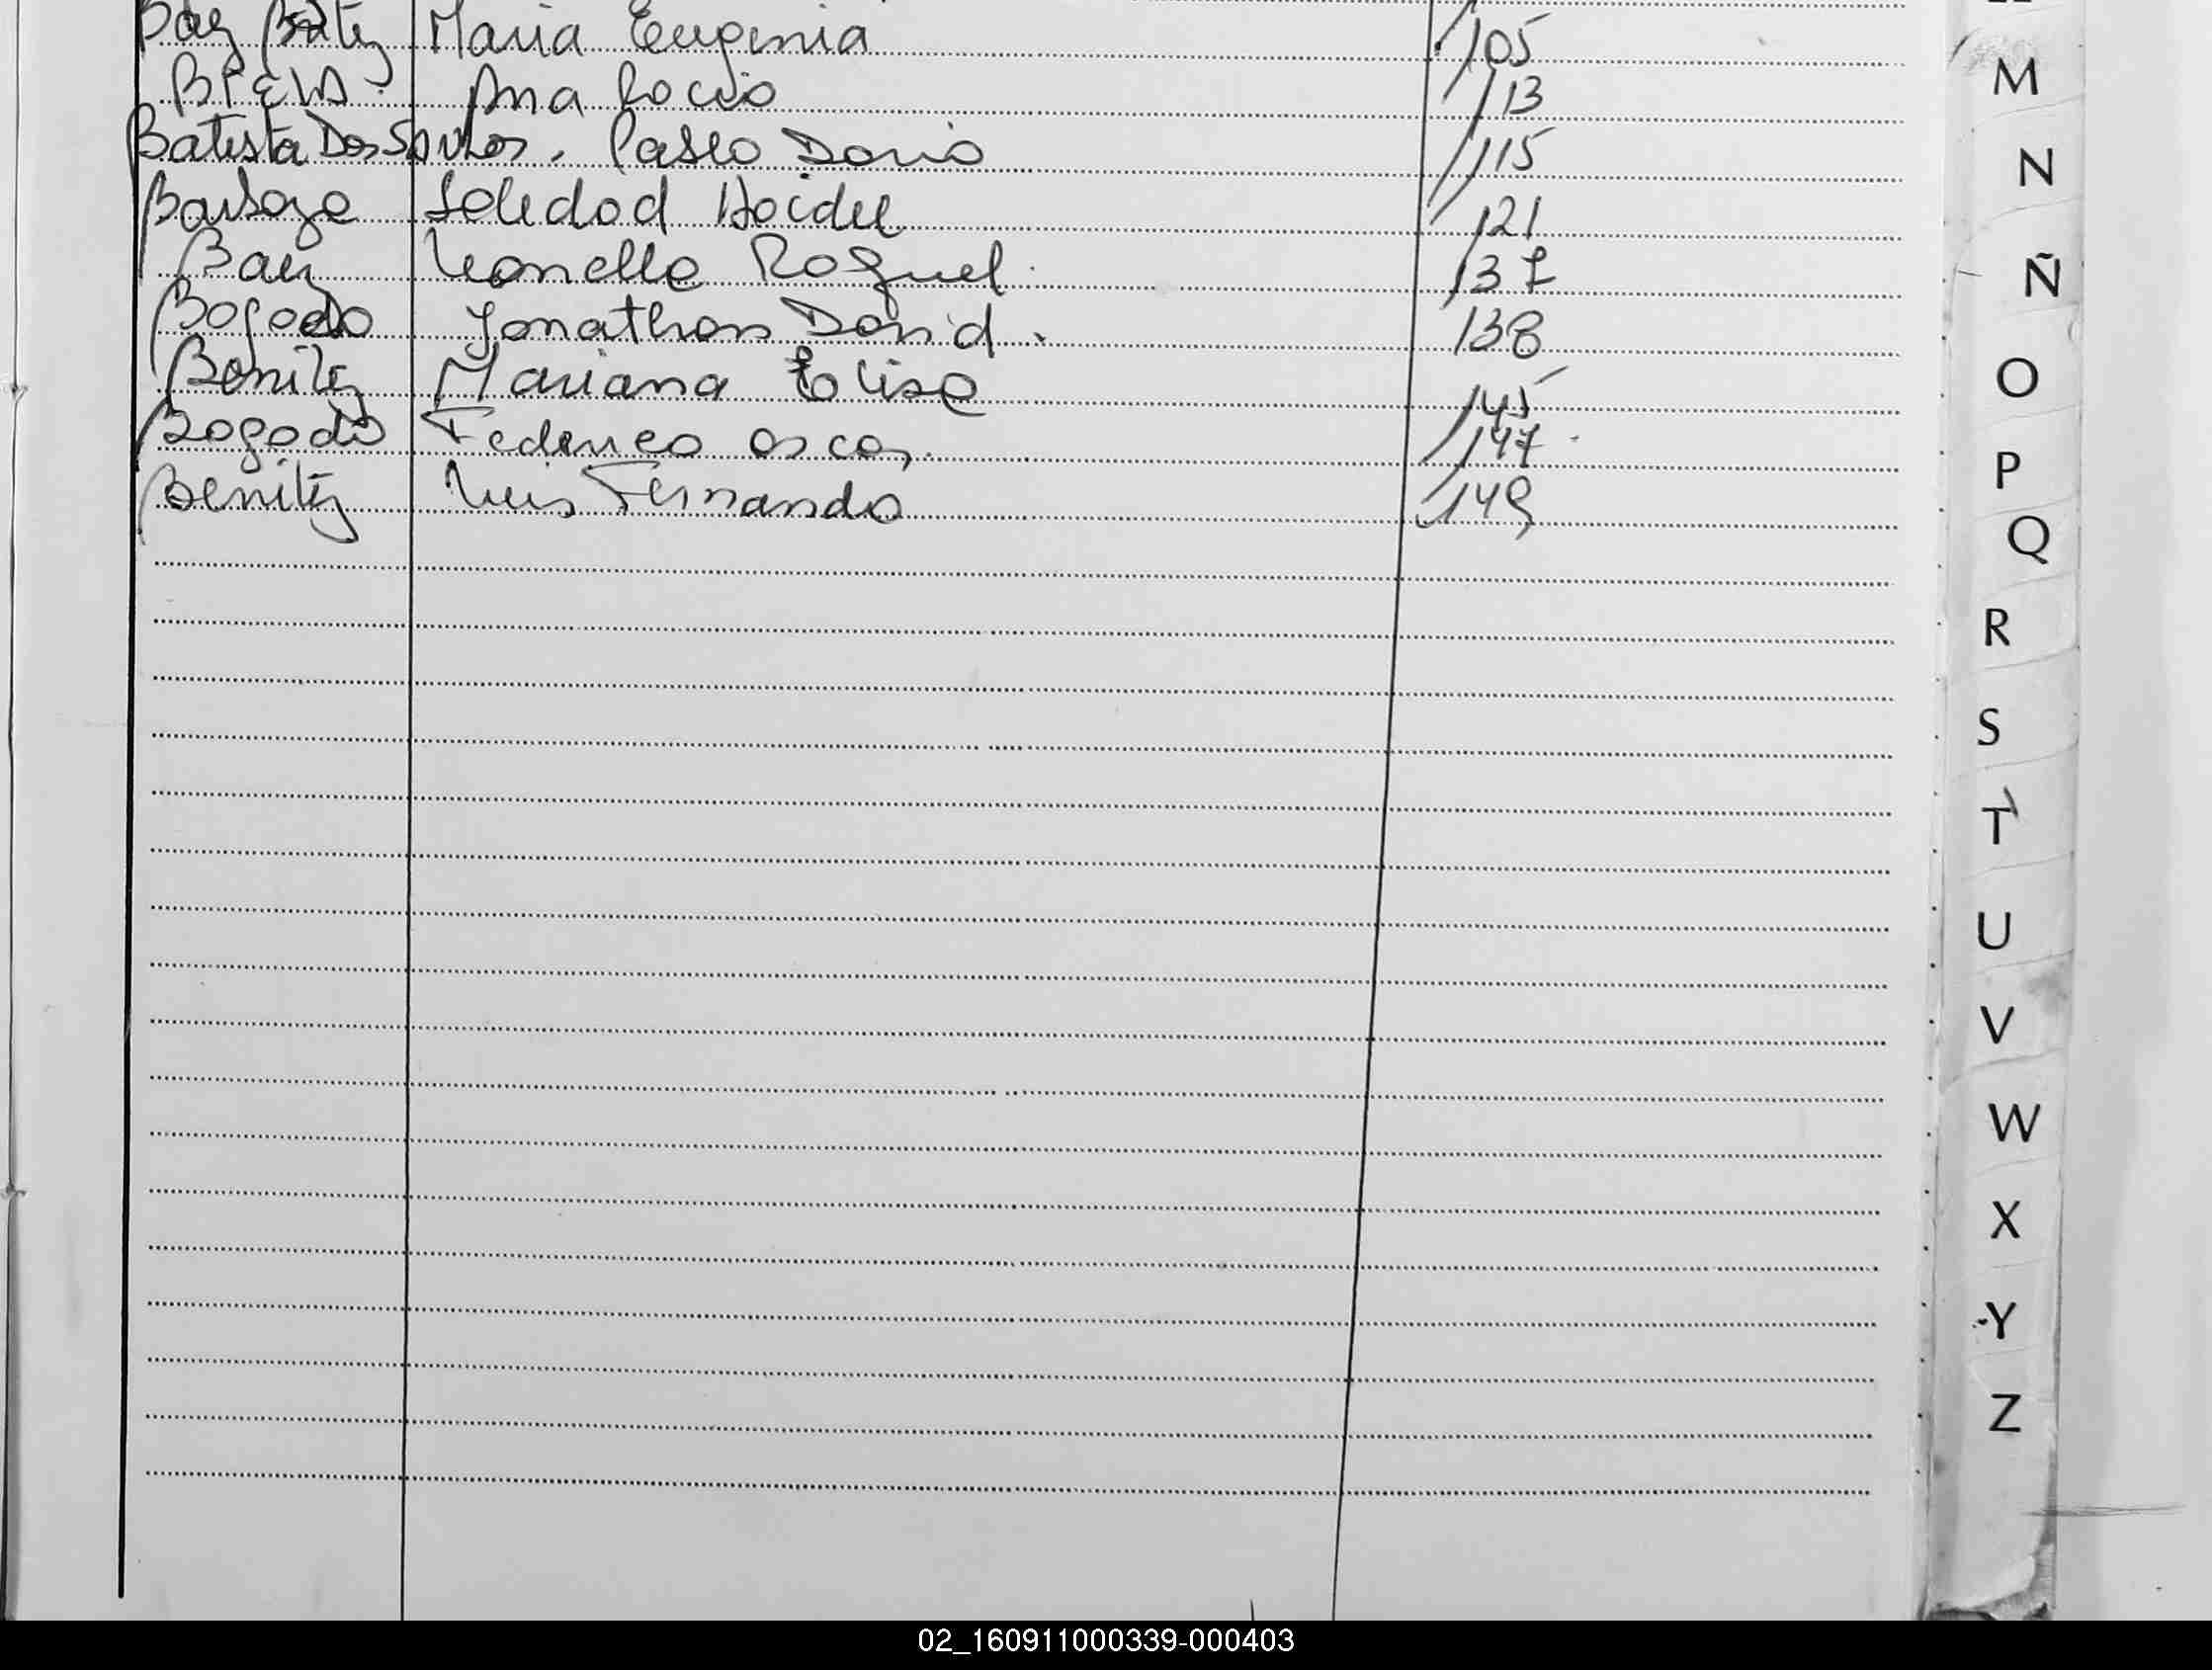 Baez Maria Eugenia 105
Ana Rocio 113
Batista Dos Santos, Pablo Dario 115
Barboza Soledad Haidee 121
Baez Leonella Raquel 137
Bogado Jonathan David. 138
Benitez Mariana Elisa 145
Bogado Federico Oscar. 147
Benitez Luis Fernando 149
M
N
Ñ
O
P
Q
R
S
T
U
V
W
X
Y
Z
02_160911000339-000403